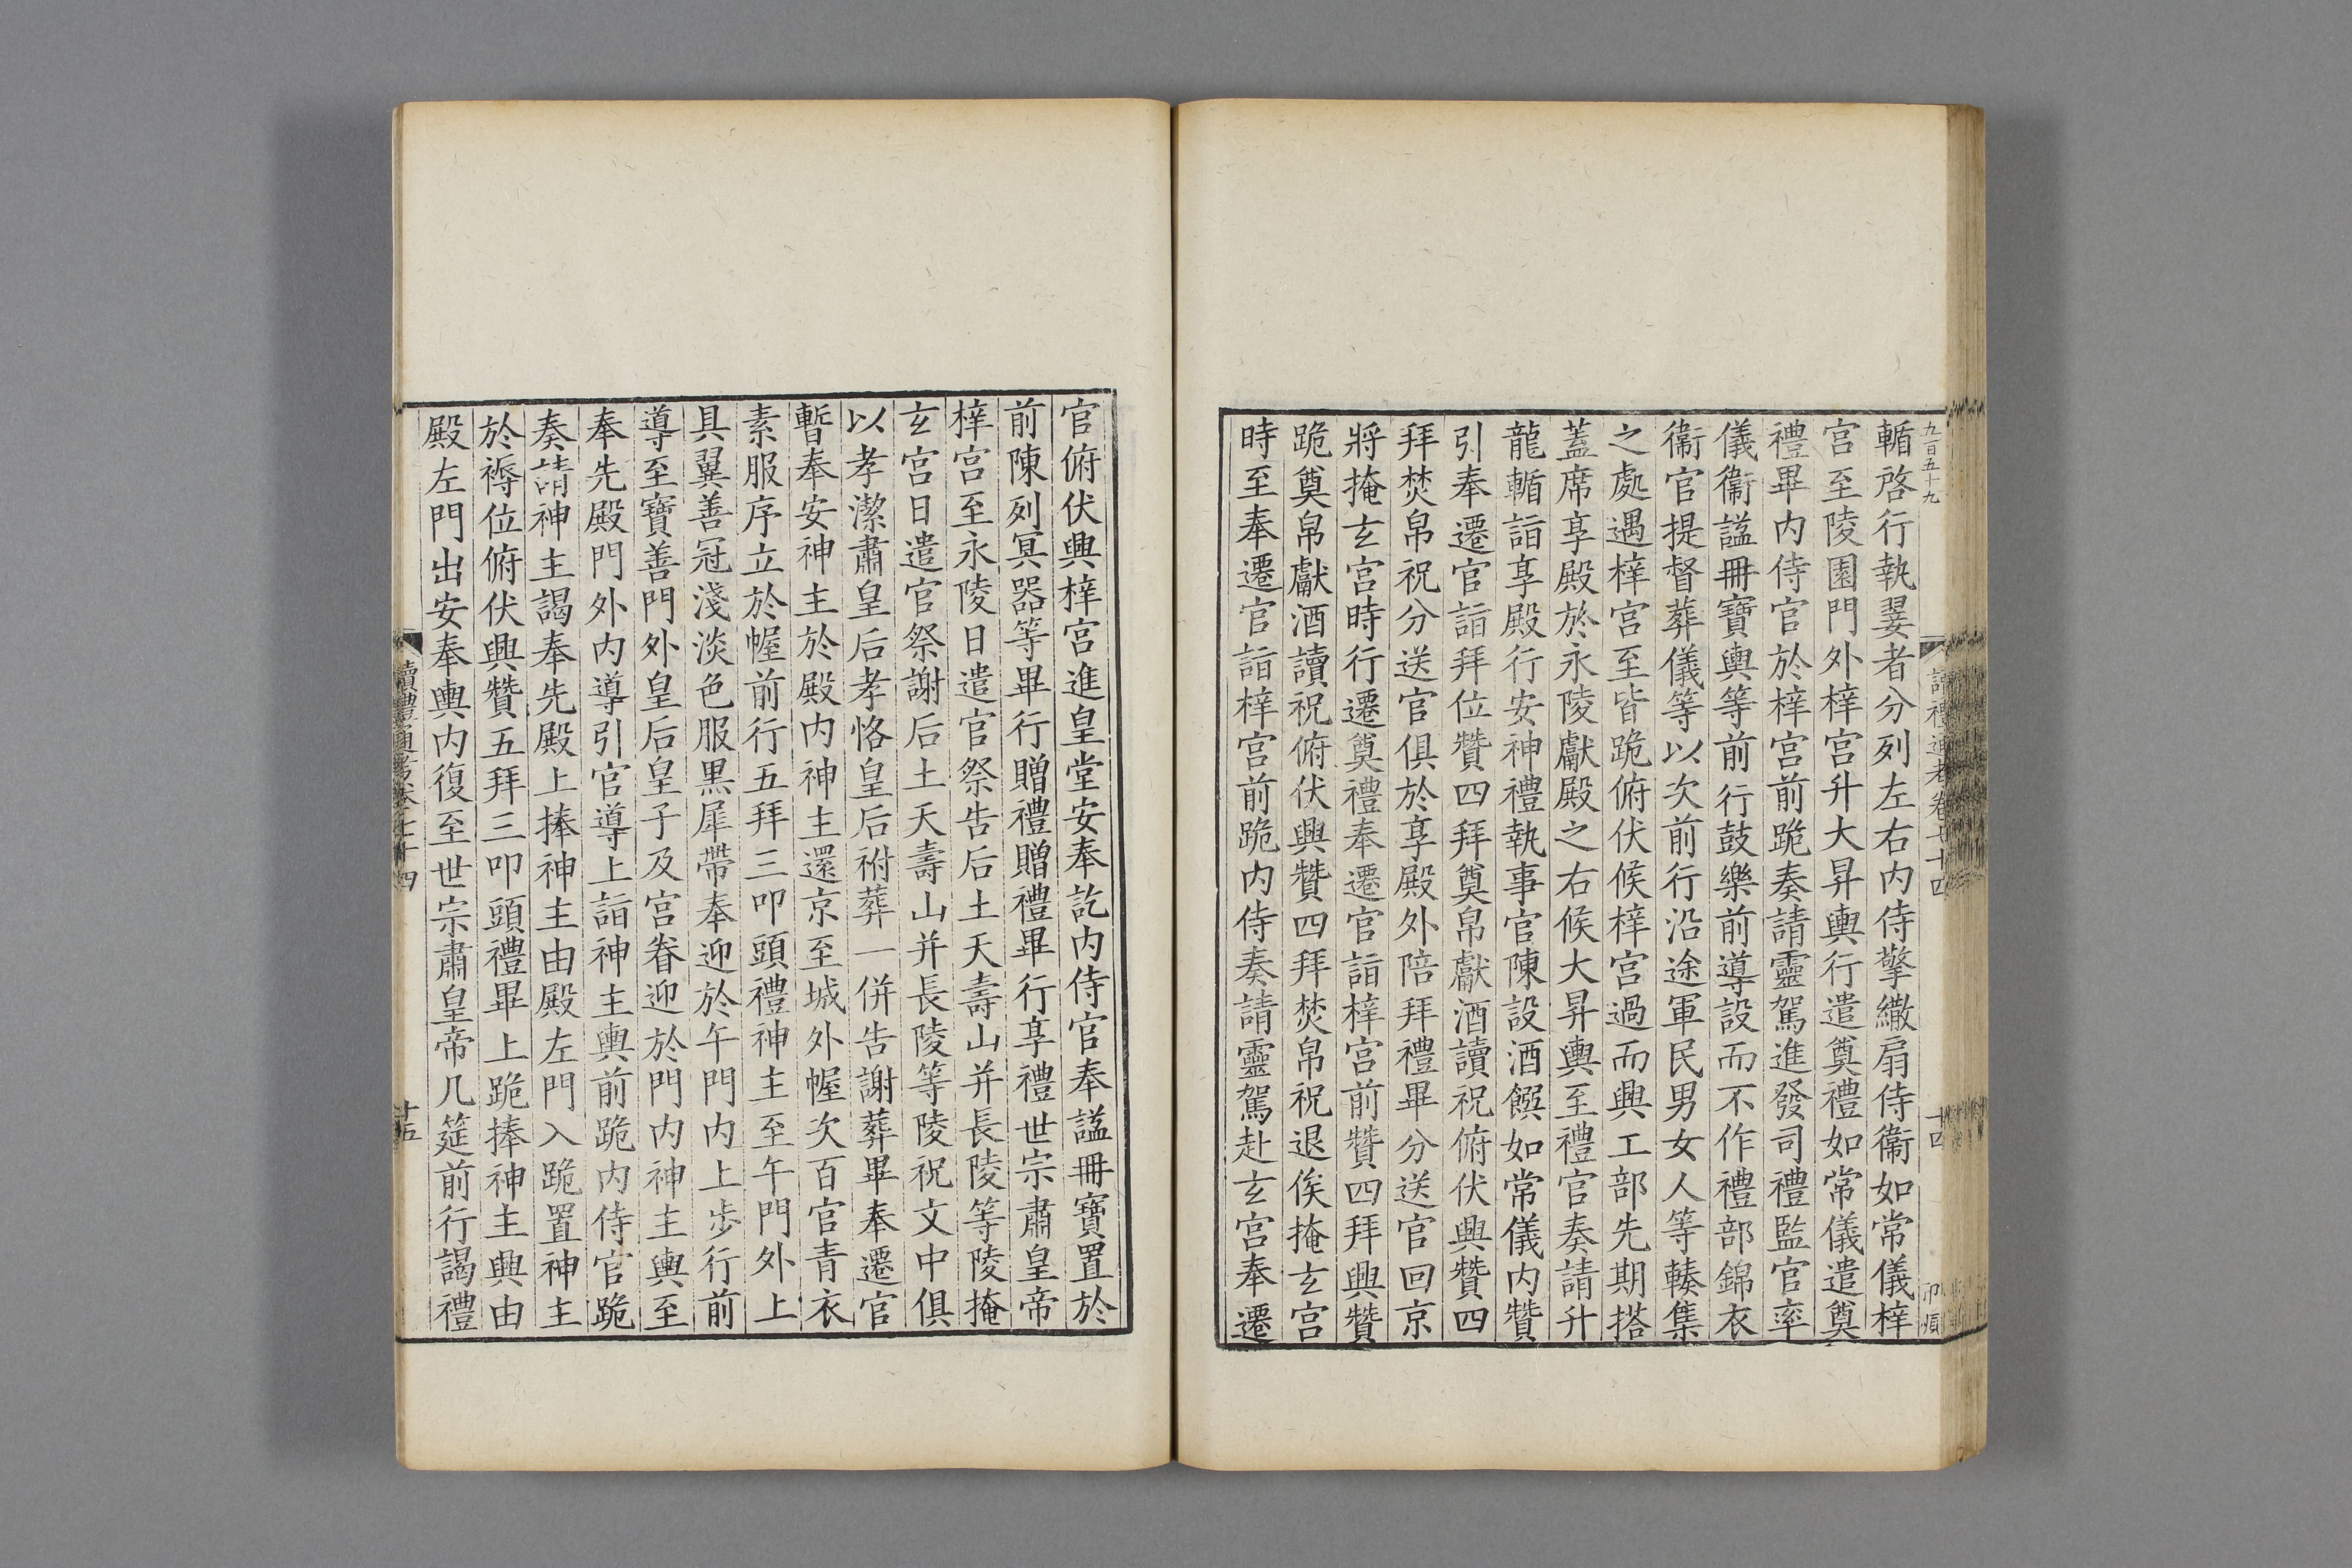 九百五十九
輴啓行執翣者分列左右内侍擎繖扇侍衞如常儀梓
宮至陵園門外梓宮升大昇輿行遣奠禮如常儀遣奠
禮畢内侍官於梓宮前跪奏請靈駕進發司禮監官率
儀衞謚冊寶輿等前行鼓樂前導設而不作禮部錦衣
衞官提督葬儀等以次前行沿途軍民男女人等輳集
之處遇梓宮至皆跪俯伏候梓宮過而興工部先期搭
蓋席享殿於永陵獻殿之右候大昇輿至禮官奏請升
龍輴詣享殿行安神禮執事官陳設酒饌如常儀内贊
引奉遷官詣拜位贊四拜奠帛獻酒讀祝俯伏興贊四
拜焚帛祝分送官俱於享殿外陪拜禮畢分送官回京
將掩玄宮時行遷奠禮奉遷官詣梓宮前贊四拜興贊
跪奠帛獻酒讀祝俯伏興贊四拜焚帛祝退俟掩玄宮
時至奉遷官詣梓宮前跪内侍奏請靈駕赴玄宮奉遷
官俯伏興梓宮進皇堂安奉訖内侍官奉謚冊寶置於
前陳列冥器等畢行贈禮贈禮畢行享禮世宗肅皇帝
梓宮至永陵日遣官祭告后土天壽山并長陵等陵掩
玄宮日遣官祭謝后土天壽山并長陵等陵祝文中俱
以孝潔肅皇后孝恪皇后祔葬一併告謝葬畢奉遷官
暫奉安神主於殿内神主還京至城外幄次百官青衣
素服序立於幄前行五拜三叩頭禮神主至午門外上
具翼善冠淺淡色服黑犀帶奉迎於午門内上步行前
導至寶善門外皇后皇子及宮眷迎於門内神主輿至
奉先殿門外内導引官導上詣神主輿前跪内侍官跪
奏請神主謁奉先殿上捧神主由殿左門入跪置神主
於褥位俯伏興贊五拜三叩頭禮畢上跪捧神主興由
殿左門出安奉輿内復至世宗肅皇帝几筵前行謁禮
讀禮通考卷七十四
十五